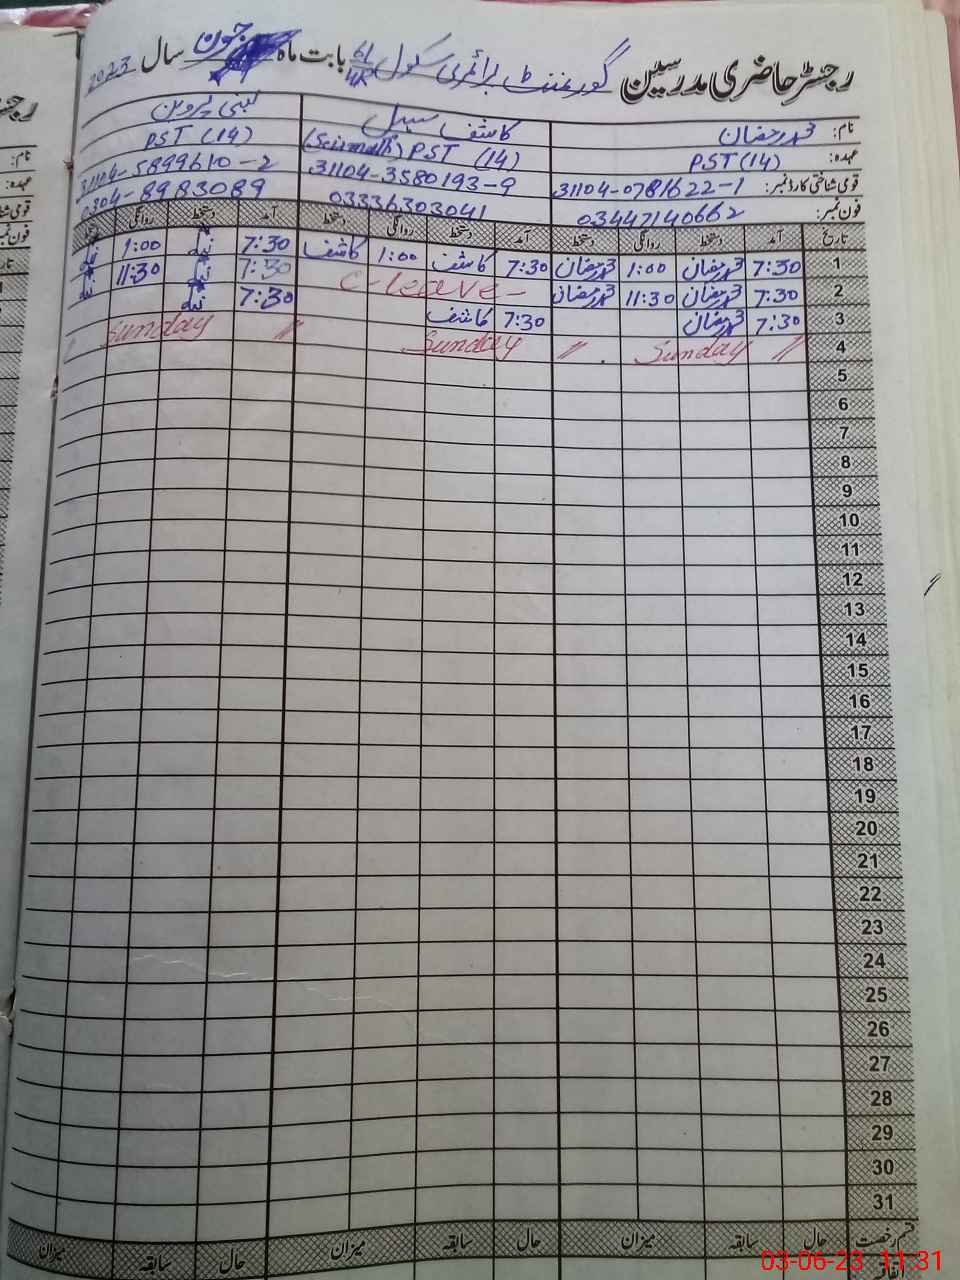 رجسٹر حاضری مدرسین گورنمنٹ پرائمری سکول 61/4R بابت ماہ جون سال 2023
نام: محمد رمضان کاشف سہیل لبنیٰ پروین
عہدہ: PST (14) (Sci-math) PST (14) PST (14)
قومی شناختی کارڈ نمبر: 31104-0781622-1 31104-3580193-9 31104-5899610-2
فون نمبر: 03447140662 03336303041 0304-8983089
تاریخ آمد دستخط روانگی دستخط آمد دستخط روانگی دستخط آمد دستخط روانگی دستخط
1 7:30 محمد رمضان 1:00 محمد رمضان 7:30 کاشف 1:00 کاشف 7:30 1:00
2 7:30 محمد رمضان 11:30 محمد رمضان C-leave- 7:30 11:30
3 7:30 محمد رمضان 7:30 کاشف 7:30
4 Sunday // Sunday // Sunday //
5
6
7
8
9
10
11
12
13
14
15
16
17
18
19
20
21
22
23
24
25
26
27
28
29
30
31
قسم رخصت حال سابقہ میزان حال سابقہ میزان حال سابقہ میزان
اتفاقیہ
03-06-23 11:31